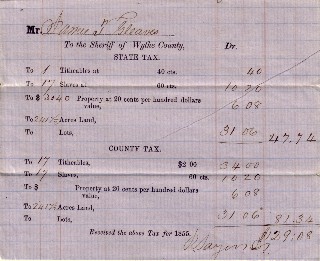 Mr. James T. Gleaves
To the Sheriff of Wythe County, Dr.
STATE TAX.
To 1 Titheables at 40 cts. 40
To 17 Slaves at 60 cts. 10 20
To $ 3040 Property at 20 cents per hundred dollars value, 6.08
To 2417½ Acres Land,
To Lots, 31.06 47.74
COUNTY TAX.
To 17 Titheables, $2 00 34 00
To 17 Slaves, 60 cts. 10.20
To $ Property at 20 cents per hundred dollars value, 6 08
To 2417½ Acres Land,
To Lots, 31 06 81.34
Received the above Tax for 1855. $129.08